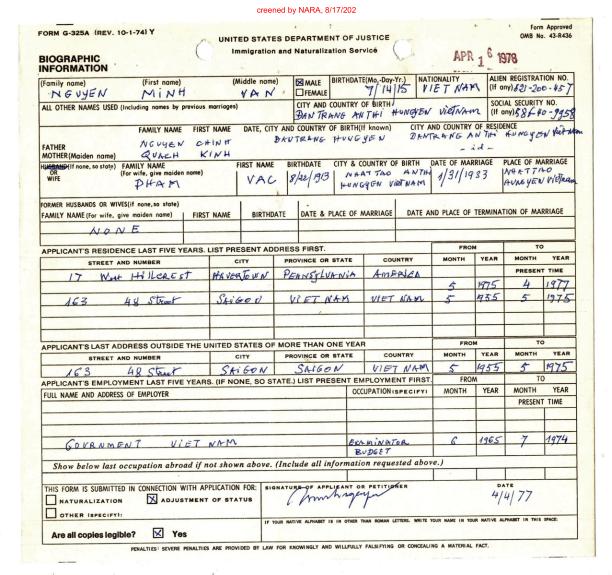 creened by NARA, 8/17/202
FORM G-325A (REV. 10-1-74) Y
UNITED STATES DEPARTMENT OF JUSTICE
Form Approved
OMB No. 43-R436
Immigration and Naturalization Service
BIOGRAPHIC INFORMATION
APR 16 1978
(Family name) (First name) (Middle name) MALE BIRTHDATE(Mo.-Day-Yr.) NATIONALITY ALIEN REGISTRATION NO.
NGUYEN MINH VAN FEMALE 7/14/15 VIET NAM (If any) 821-200-457
ALL OTHER NAMES USED (Including names by previous marriages) CITY AND COUNTRY OF BIRTH SOCIAL SECURITY NO.
DANTRANG ANTHI HUNGYEN VIETNAM (If any) 586-40-9958
FAMILY NAME FIRST NAME DATE, CITY AND COUNTRY OF BIRTH(If known) CITY AND COUNTRY OF RESIDENCE
FATHER NGUYEN CHINH DANTRANG HUNGYEN DANTRANG AN THI HUNGYEN Việt Nam
MOTHER(Maiden name) QUACH KINH -id-
HUSBAND(If none, so state) OR WIFE FAMILY NAME (For wife, give maiden name) FIRST NAME BIRTHDATE CITY & COUNTRY OF BIRTH DATE OF MARRIAGE PLACE OF MARRIAGE
PHAM VAC 8/22/1913 NHATTAO ANTHI HUNGYEN VIETNAM 1/31/1933 NHATTAO HUNGYEN Vietnam
FORMER HUSBANDS OR WIVES(if none, so state)
FAMILY NAME (For wife, give maiden name) FIRST NAME BIRTHDATE DATE & PLACE OF MARRIAGE DATE AND PLACE OF TERMINATION OF MARRIAGE
NONE
APPLICANT'S RESIDENCE LAST FIVE YEARS. LIST PRESENT ADDRESS FIRST. FROM TO
STREET AND NUMBER CITY PROVINCE OR STATE COUNTRY MONTH YEAR MONTH YEAR
PRESENT TIME
17 West Hillcrest HAVERTOWN PENNSYLVANIA AMERICA 5 1975 4 1977
163 48 Street SAIGON VIET NAM VIET NAM 5 1955 5 1975
APPLICANT'S LAST ADDRESS OUTSIDE THE UNITED STATES OF MORE THAN ONE YEAR FROM TO
STREET AND NUMBER CITY PROVINCE OR STATE COUNTRY MONTH YEAR MONTH YEAR
163 48 Street SAIGON SAIGON VIET NAM 5 1955 5 1975
APPLICANT'S EMPLOYMENT LAST FIVE YEARS. (IF NONE, SO STATE.) LIST PRESENT EMPLOYMENT FIRST. FROM TO
FULL NAME AND ADDRESS OF EMPLOYER OCCUPATION(SPECIFY) MONTH YEAR MONTH YEAR
PRESENT TIME
GOVRNMENT VIET NAM EXAMINATOR BUDGET 6 1965 7 1974
Show below last occupation abroad if not shown above. (Include all information requested above.)
THIS FORM IS SUBMITTED IN CONNECTION WITH APPLICATION FOR: SIGNATURE OF APPLICANT OR PETITIONER DATE
NATURALIZATION ADJUSTMENT OF STATUS 4/4/77
OTHER (SPECIFY):
IF YOUR NATIVE ALPHABET IS IN OTHER THAN ROMAN LETTERS, WRITE YOUR NAME IN YOUR NATIVE ALPHABET IN THIS SPACE:
Are all copies legible? Yes
PENALTIES: SEVERE PENALTIES ARE PROVIDED BY LAW FOR KNOWINGLY AND WILLFULLY FALSIFYING OR CONCEALING A MATERIAL FACT.